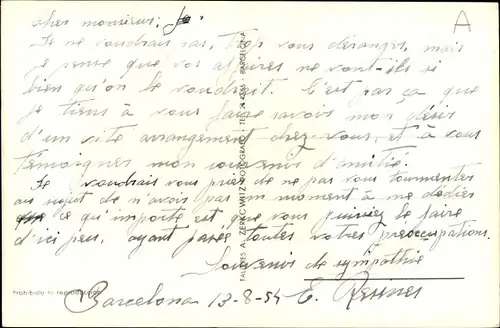 cher monsieur; Je
Je ne voudrais pas, trop vous déranger, mais
je pense que vos affaires ne vont-ils si
bien qu'on le voudrait. C'est pas ça que
je tiens à vous faire savoir mon désir
d'un vite arrangement chez-vous, et à vous
témoigner mon souvenir d'amitié.
Je voudrais vous prier de ne pas vous tourmenter
au sujet de n'avoir pas un moment à me dédier
ce qu'importe est que vous puissiez le faire
d'ici peu, ayant passé toutes votres préoccupations.
Souvenir de sympathie
Barcelona 13-8-54 E.
A
TALLERES A. ZERKOWITZ FOTOGRAFO - TELF. - BARCELONA
Prohibida la reproducción